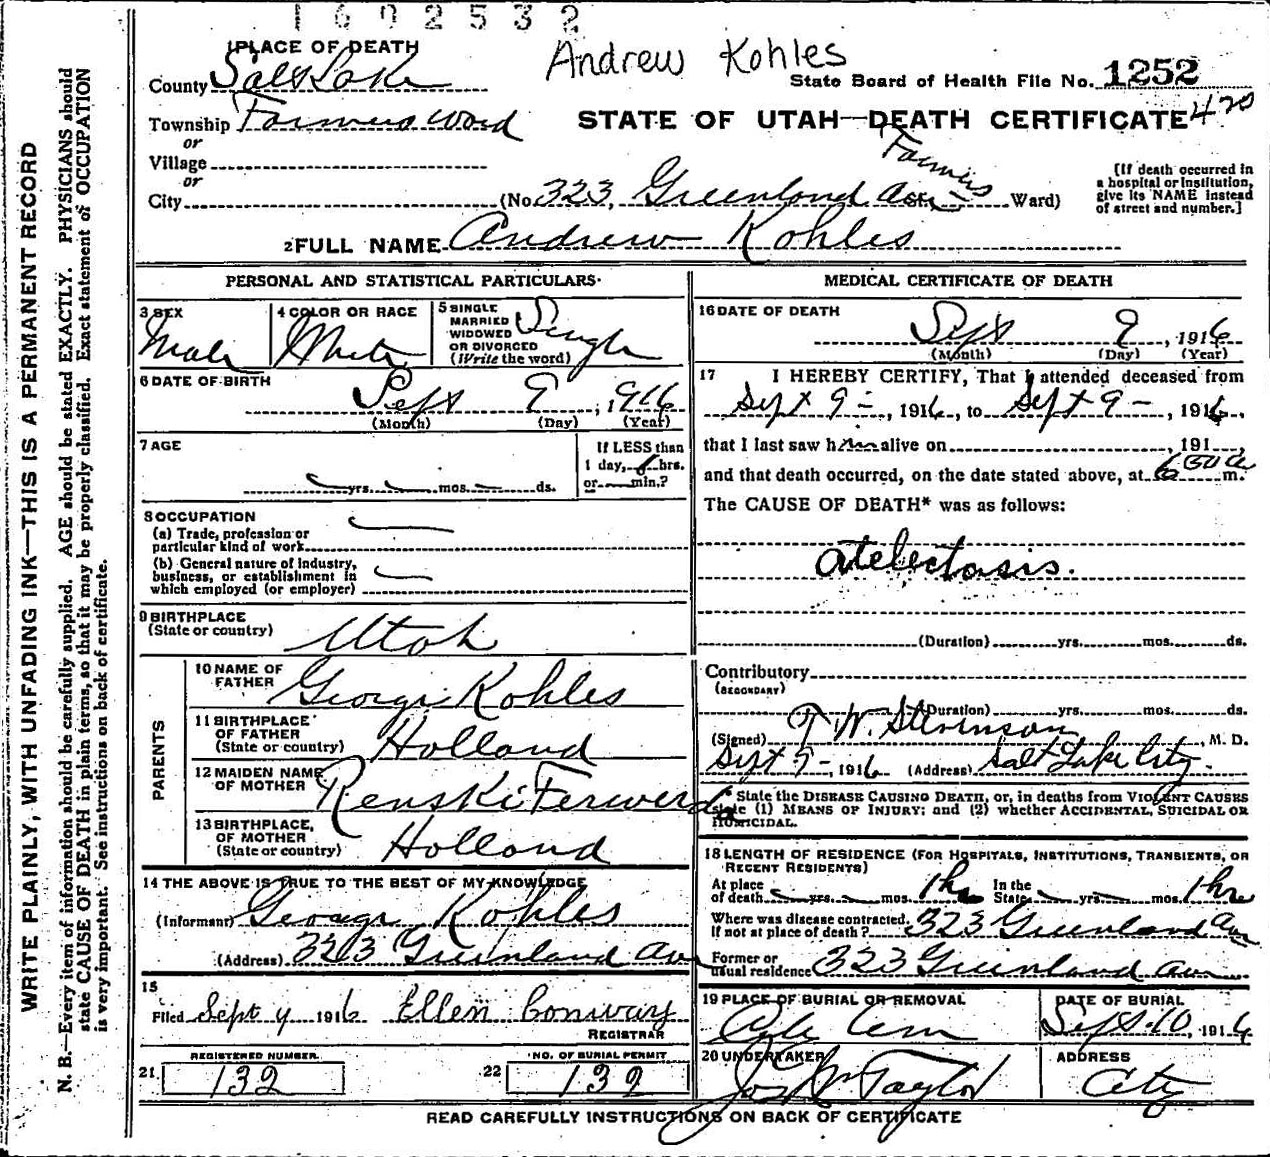 1602532
Andrew Kohles
1 PLACE OF DEATH
County Salt Lake
State Board of Health File No. 1252
Township Farmers Ward
STATE OF UTAH—DEATH CERTIFICATE 420
or
Village
or
City (No. 323, Greenland Ave St. Farmers Ward)
[If death occurred in
a hospital or institution,
give its NAME instead
of street and number.]
2 FULL NAME Andrew Kohles
PERSONAL AND STATISTICAL PARTICULARS.
3 SEX Male
4 COLOR OR RACE White
5 SINGLE
MARRIED
WIDOWED
OR DIVORCED
(Write the word) Single
6 DATE OF BIRTH
Sept 9, 1916
(Month) (Day) (Year)
7 AGE
yrs. mos. ds.
If LESS than
1 day, hrs.
or min.?
8 OCCUPATION
(a) Trade, profession or
particular kind of work
(b) General nature of industry,
business, or establishment in
which employed (or employer)
9 BIRTHPLACE
(State or country) Utah
PARENTS
10 NAME OF
FATHER George Kohles
11 BIRTHPLACE
OF FATHER
(State or country) Holland
12 MAIDEN NAME
OF MOTHER Renski Ferwerda
13 BIRTHPLACE,
OF MOTHER
(State or country) Holland
14 THE ABOVE IS TRUE TO THE BEST OF MY KNOWLEDGE
(Informant) George Kohles
(Address) 323 Greenland Ave
15
Filed Sept 9 1916 Ellen Conway
REGISTRAR
REGISTERED NUMBER.
21 132
NO. OF BURIAL PERMIT
22 132
MEDICAL CERTIFICATE OF DEATH
16 DATE OF DEATH
Sept 9, 1916
(Month) (Day) (Year)
17 I HEREBY CERTIFY, That I attended deceased from
Sept 9 -, 1916, to Sept 9 -, 1916,
that I last saw him alive on , 191 ,
and that death occurred, on the date stated above, at 6 50 a m.
The CAUSE OF DEATH* was as follows:
Atelectasis.
(Duration) yrs. mos. ds.
Contributory
(SECONDARY)
(Duration) yrs. mos. ds.
(Signed) T W. Stevenson, M. D.
Sept 9-, 1916 (Address) Salt Lake City.
* State the DISEASE CAUSING DEATH, or, in deaths from VIOLENT CAUSES
state (1) MEANS OF INJURY; and (2) whether ACCIDENTAL, SUICIDAL OR
HOMICIDAL.
18 LENGTH OF RESIDENCE (FOR HOSPITALS, INSTITUTIONS, TRANSIENTS, OR
RECENT RESIDENTS)
At place
of death yrs. mos. 1 hr In the
State yrs. mos. 1 hr
Where was disease contracted,
If not at place of death? 323 Greenland Ave
Former or
usual residence 323 Greenland Ave
19 PLACE OF BURIAL OR REMOVAL
City Cem
DATE OF BURIAL
Sept. 10, 1916
20 UNDERTAKER
Jos Wm Taylor
ADDRESS
City
READ CAREFULLY INSTRUCTIONS ON BACK OF CERTIFICATE
WRITE PLAINLY, WITH UNFADING INK—THIS IS A PERMANENT RECORD
N. B.—Every item of information should be carefully supplied. AGE should be stated EXACTLY. PHYSICIANS should
state CAUSE OF DEATH in plain terms, so that it may be properly classified. Exact statement of OCCUPATION
is very important. See instructions on back of certificate.